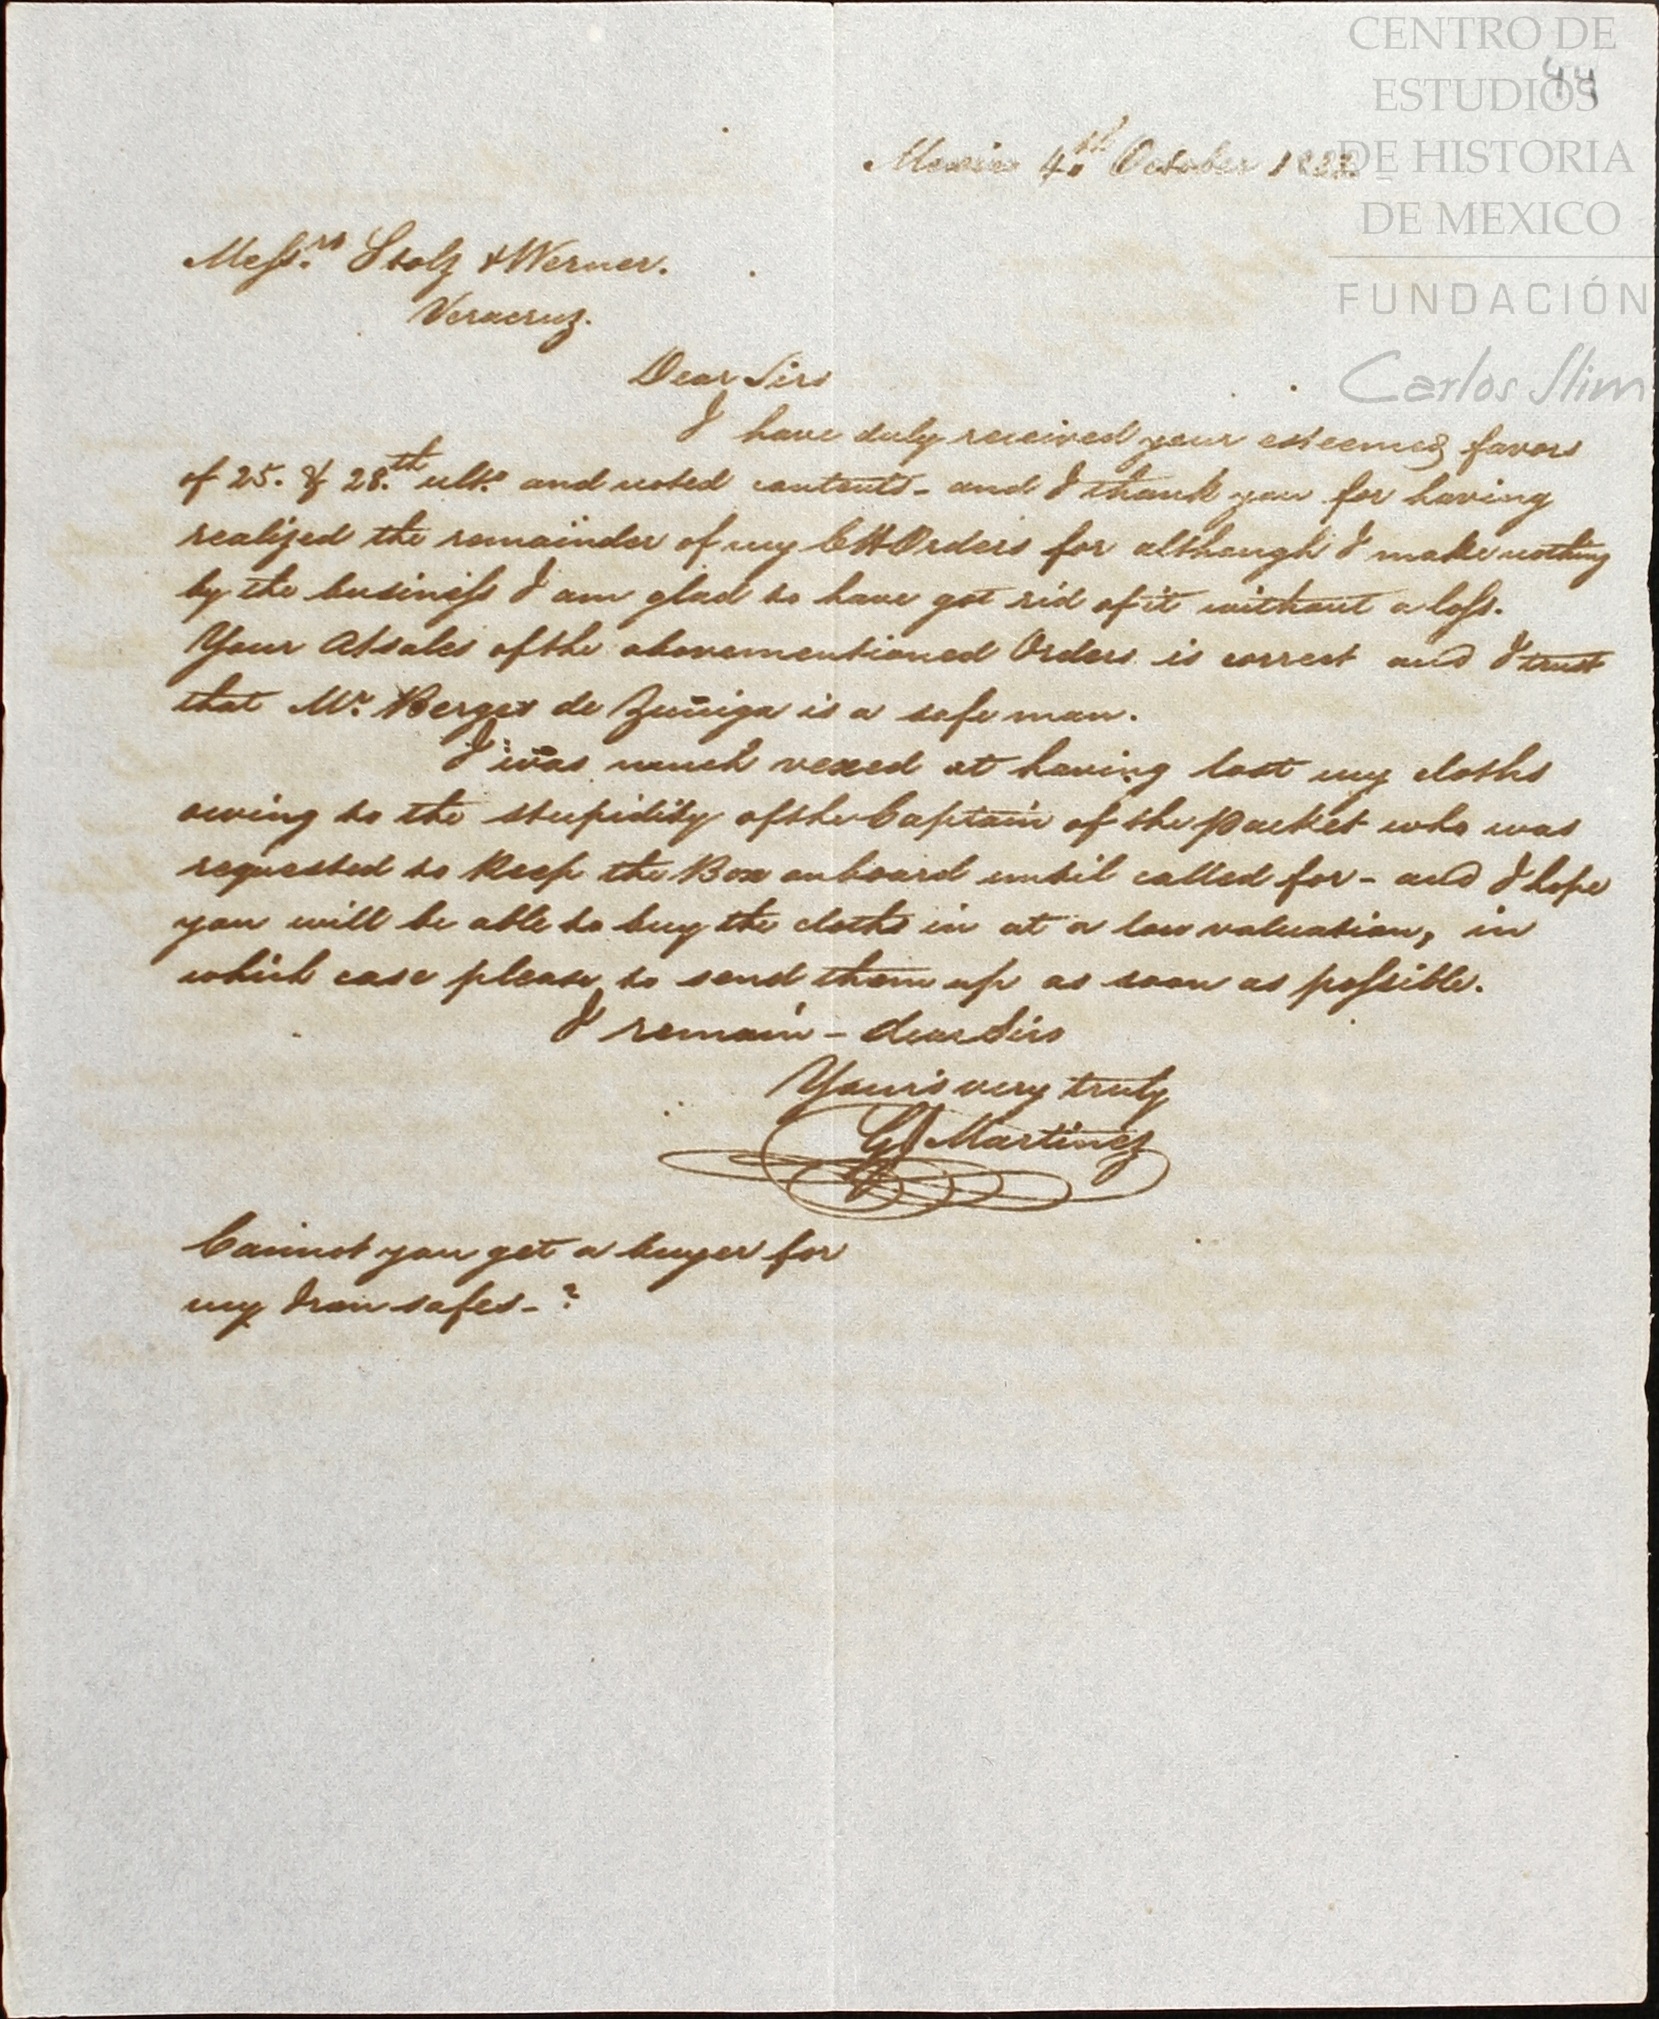 CENTRO DE
ESTUDIOS
44
DE HISTORIA
DE MEXICO
FUNDACIÓN
Carlos Slim
Mexico 4th October
Messrs. Stolz & Werner.
Veracruz.
Dear Sirs
I have duly received your esteemed favors
of 25. & 28.th ulto. and noted contents - and I thank you for having
realized the remainder of my CHOrders for although I make nothing
by the business I am glad to have got rid of it without a loss.
Your A/sales of the abovementioned Orders is correct and I trust
that Mr. Berges de Zuñiga is a safe man.
I was much vexed at having lost my cloths
owing to the stupidity of the Captain of the packet who was
requested to Keep the Box onboard until called for - and I hope
you will be able to buy the cloths in at a low valuation, in
which case please to send them up as soon as possible.
I remain - dear Sirs
Your's very truly
G Martinez
Cannot you get a buyer for
my Iron safes - ?